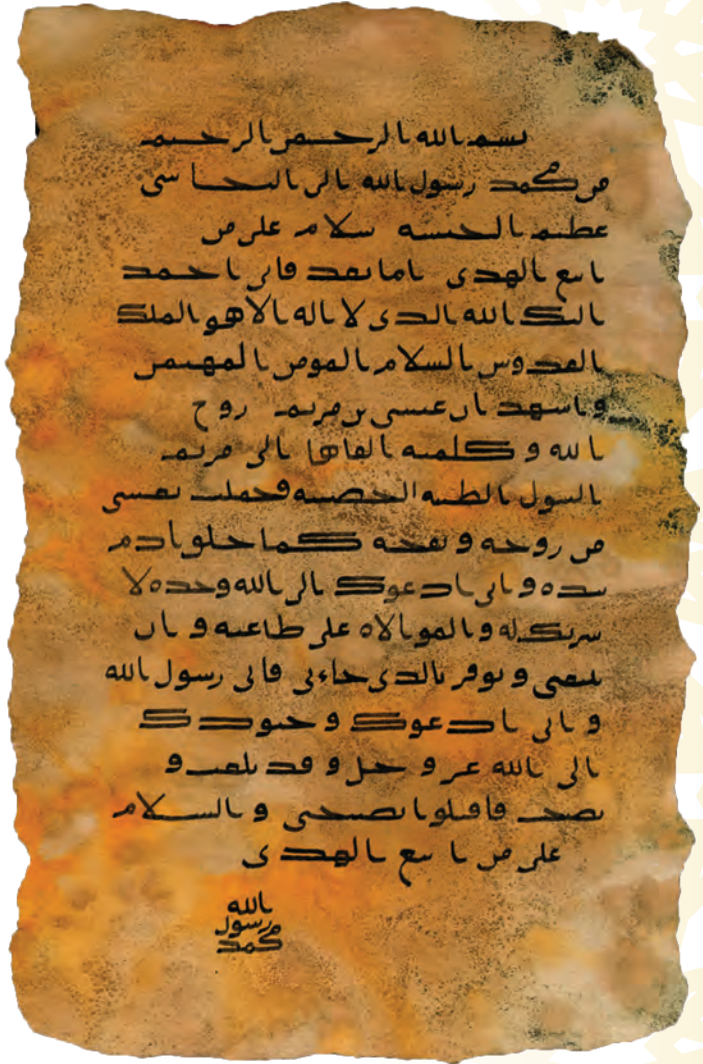 بسم الله الرحمن الرحيم
من محمد رسول الله الى النجاشي
عظيم الحبشة سلام على من
اتبع الهدى اما بعد فاني احمد
اليك الله الذي لا اله الا هو الملك
القدوس السلام المومن المهيمن
واشهد ان عيسى بن مريم روح
الله و كلمته القاها الى مريم
البتول الطيبة الحصينة فحملت بعيسى
من روحه و نفخه كما خلق ادم
بيده و اني ادعوك الى الله وحده لا
شريك له و الموالاة على طاعته و ان
تتبعني و توقن بالذي جاءني فاني رسول الله
و اني ادعوك و جنودك
الى الله عز و جل و قد بلغت و
نصحت فاقبلوا نصحي و السلام
على من اتبع الهدى
الله
رسول
محمد